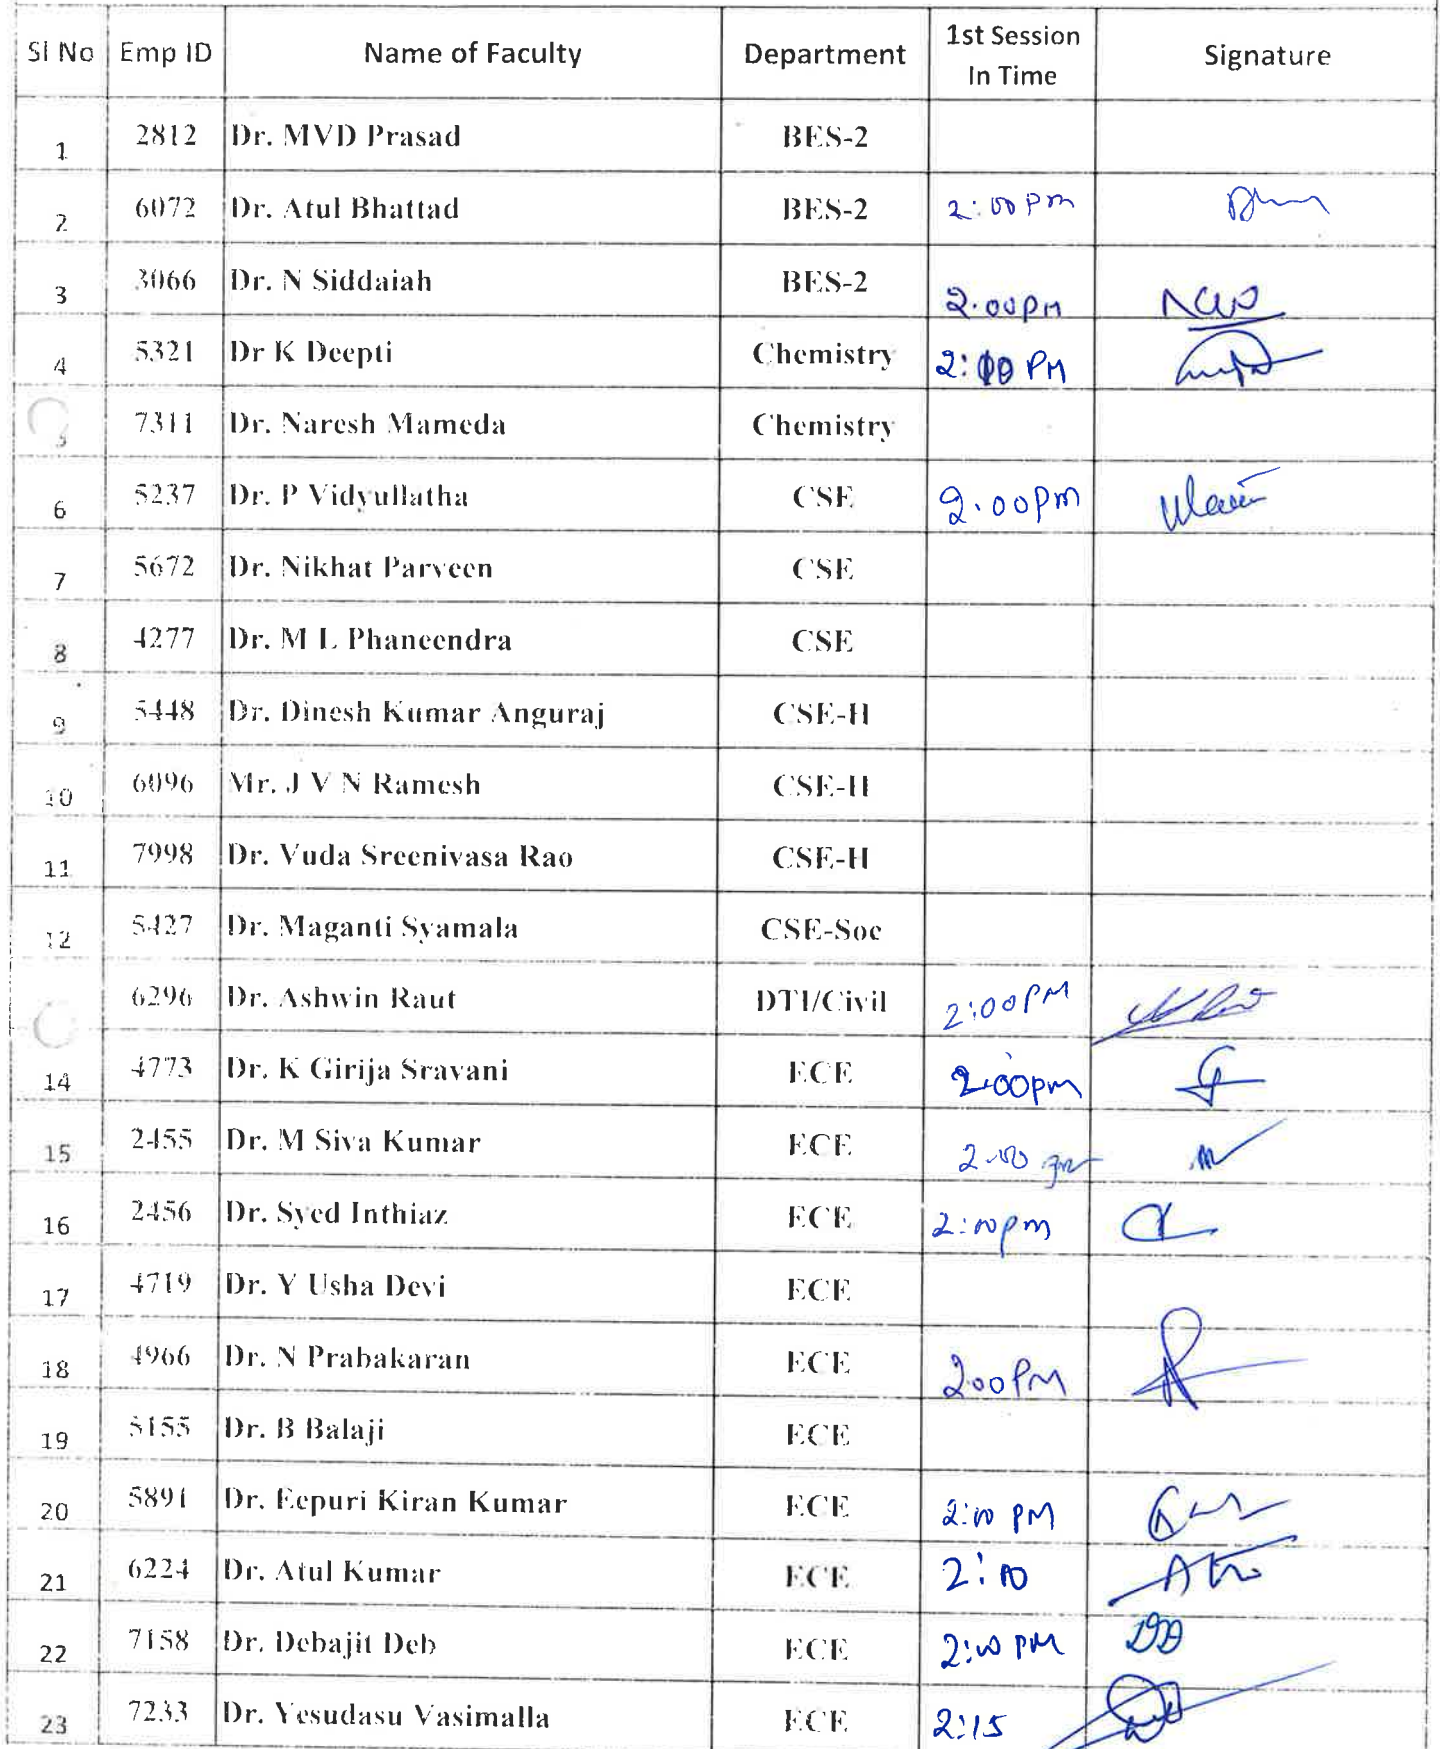 Sl No Emp ID Name of Faculty Department 1st Session In Time Signature
1 2812 Dr. MVD Prasad BES-2
2 6072 Dr. Atul Bhattad BES-2 2:00 PM
3 3066 Dr. N Siddaiah BES-2 2.00PM
4 5321 Dr K Deepti Chemistry 2:00 PM
5 7311 Dr. Naresh Mameda Chemistry
6 5237 Dr. P Vidyullatha CSE 2.00pm
7 5672 Dr. Nikhat Parveen CSE
8 4277 Dr. M L Phaneendra CSE
9 5448 Dr. Dinesh Kumar Anguraj CSE-H
10 6096 Mr. J V N Ramesh CSE-H
11 7998 Dr. Vuda Sreenivasa Rao CSE-H
12 5427 Dr. Maganti Syamala CSE-Soc
6296 Dr. Ashwin Raut DTI/Civil 2:00PM
14 4773 Dr. K Girija Sravani ECE 2:00pm
15 2455 Dr. M Siva Kumar ECE 2.00
16 2456 Dr. Syed Inthiaz ECE 2:00pm
17 4719 Dr. Y Usha Devi ECE
18 4966 Dr. N Prabakaran ECE 200PM
19 5155 Dr. B Balaji ECE
20 5891 Dr. Eepuri Kiran Kumar ECE 2:00 PM
21 6224 Dr. Atul Kumar ECE 2:00
22 7158 Dr. Debajit Deb ECE 2:00 PM
23 7233 Dr. Yesudasu Vasimalla ECE 2:15